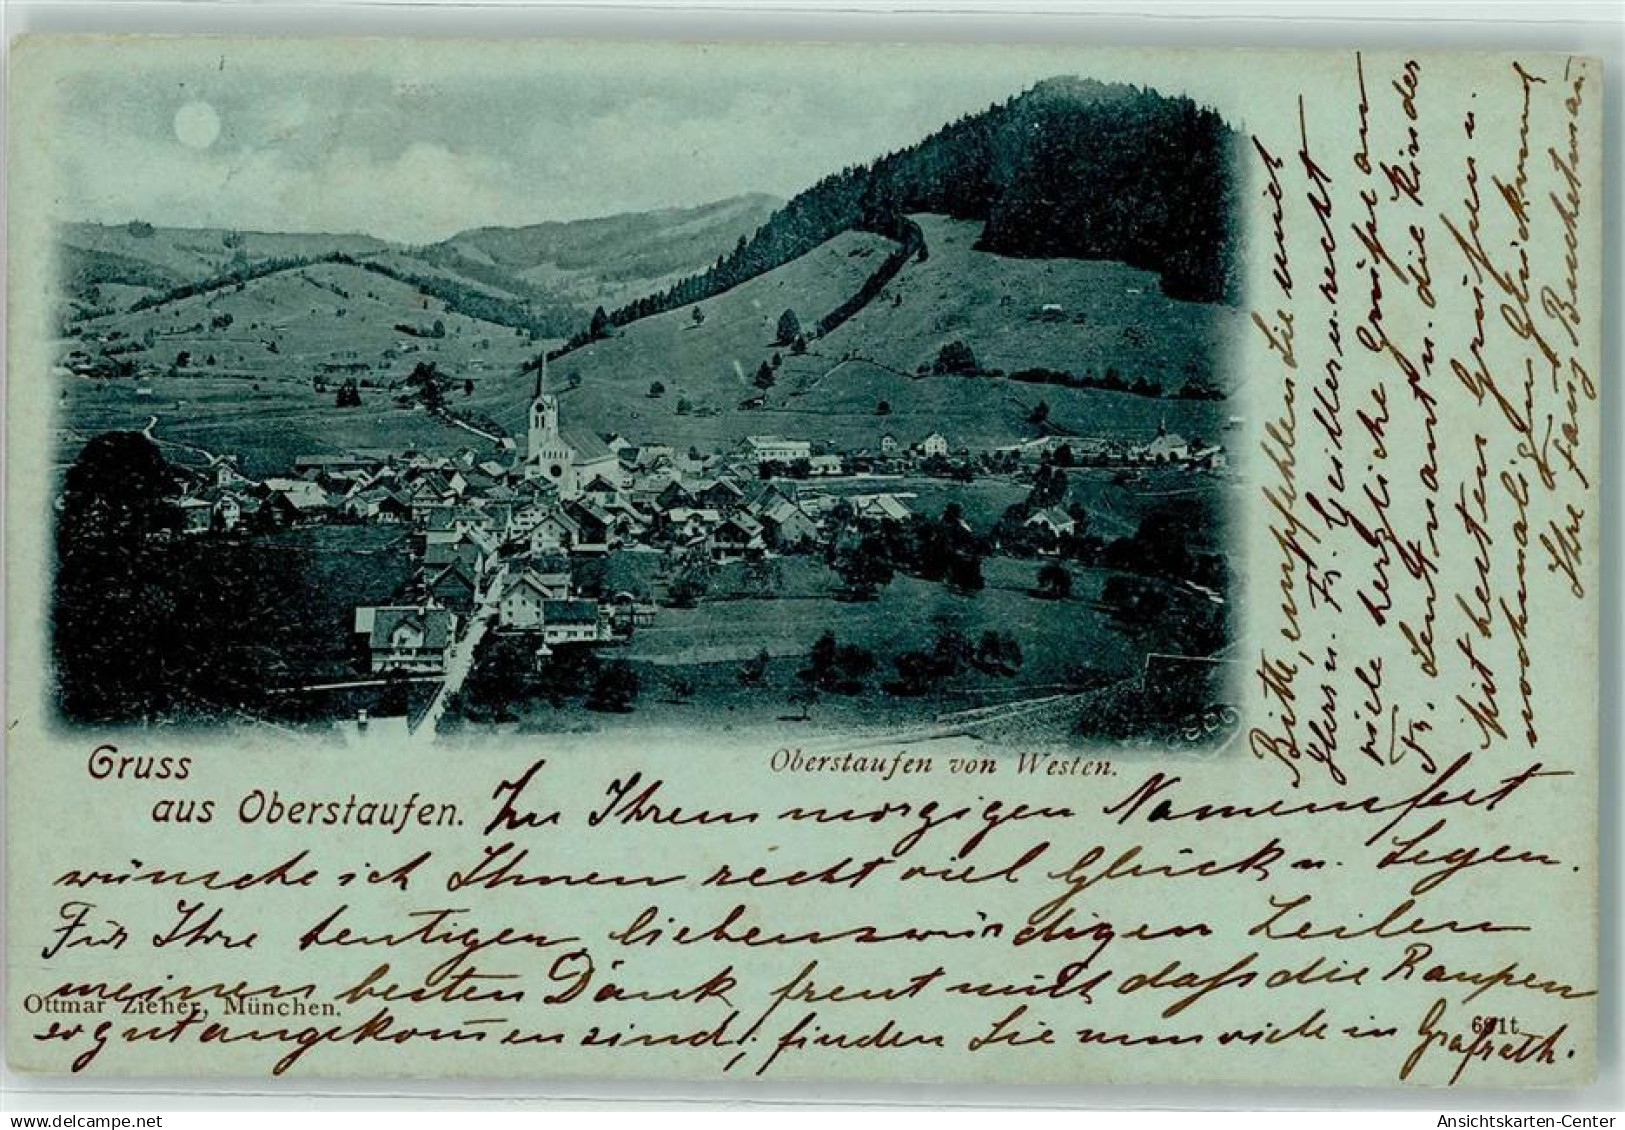 Gruss
aus Oberstaufen.
Oberstaufen von Westen.
Zu Ihrem morgigen Namensfest
wünsche ich Ihnen recht viel Glück u. Segen.
Für Ihre heutigen liebenswürdigen Zeilen
meinen besten Dank, freut mich daß die Raupen
so gut angekom̄en sind; finden Sie nun viele in Grafrath.
Ottmar Zieher, München.
691t
Bitte, empfehlen Sie mich
Herrn u. Fr. Geiller u. recht
viele herzliche Grüße an
Fr. Leutnant u. die Kinder
Mit besten Grüßen u.
nochmaligem Glückwunsch
Ihre Fany
Ansichtskarten-Center